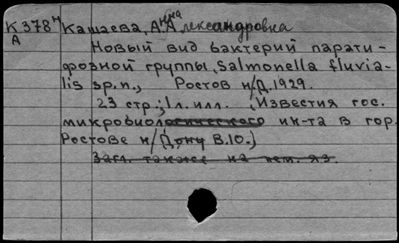 К378ч Кашаева, Анна Александровна
А
Новый вид бактерий парати-
фозной группы, Salmonella fluvia-
lis sp.n., Ростов н/Д. 1929.
23 стр.; 1 л. илл. (Известия гос.
микробиологического ин-та в гор.
Ростове н/Дону В.10.)
Загл. также на нем. яз.